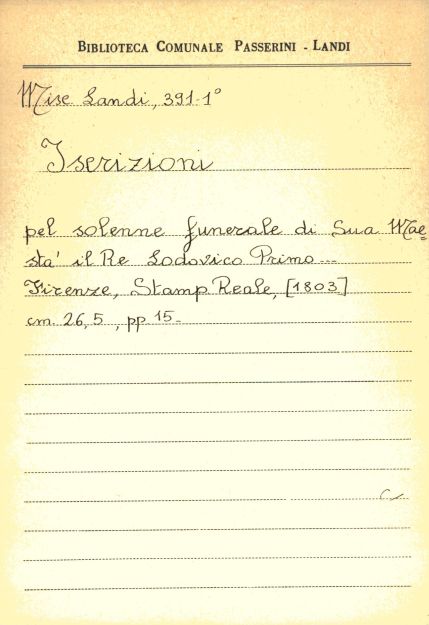 BIBLIOTECA COMUNALE PASSERINI - LANDI
Misc Landi, 391-1°
Iscrizioni
pel solenne funerale di Sua Mae=
sta' il Re Lodovico Primo ...
Firenze, Stamp. Reale, [1803]
cm. 26,5, pp. 15-